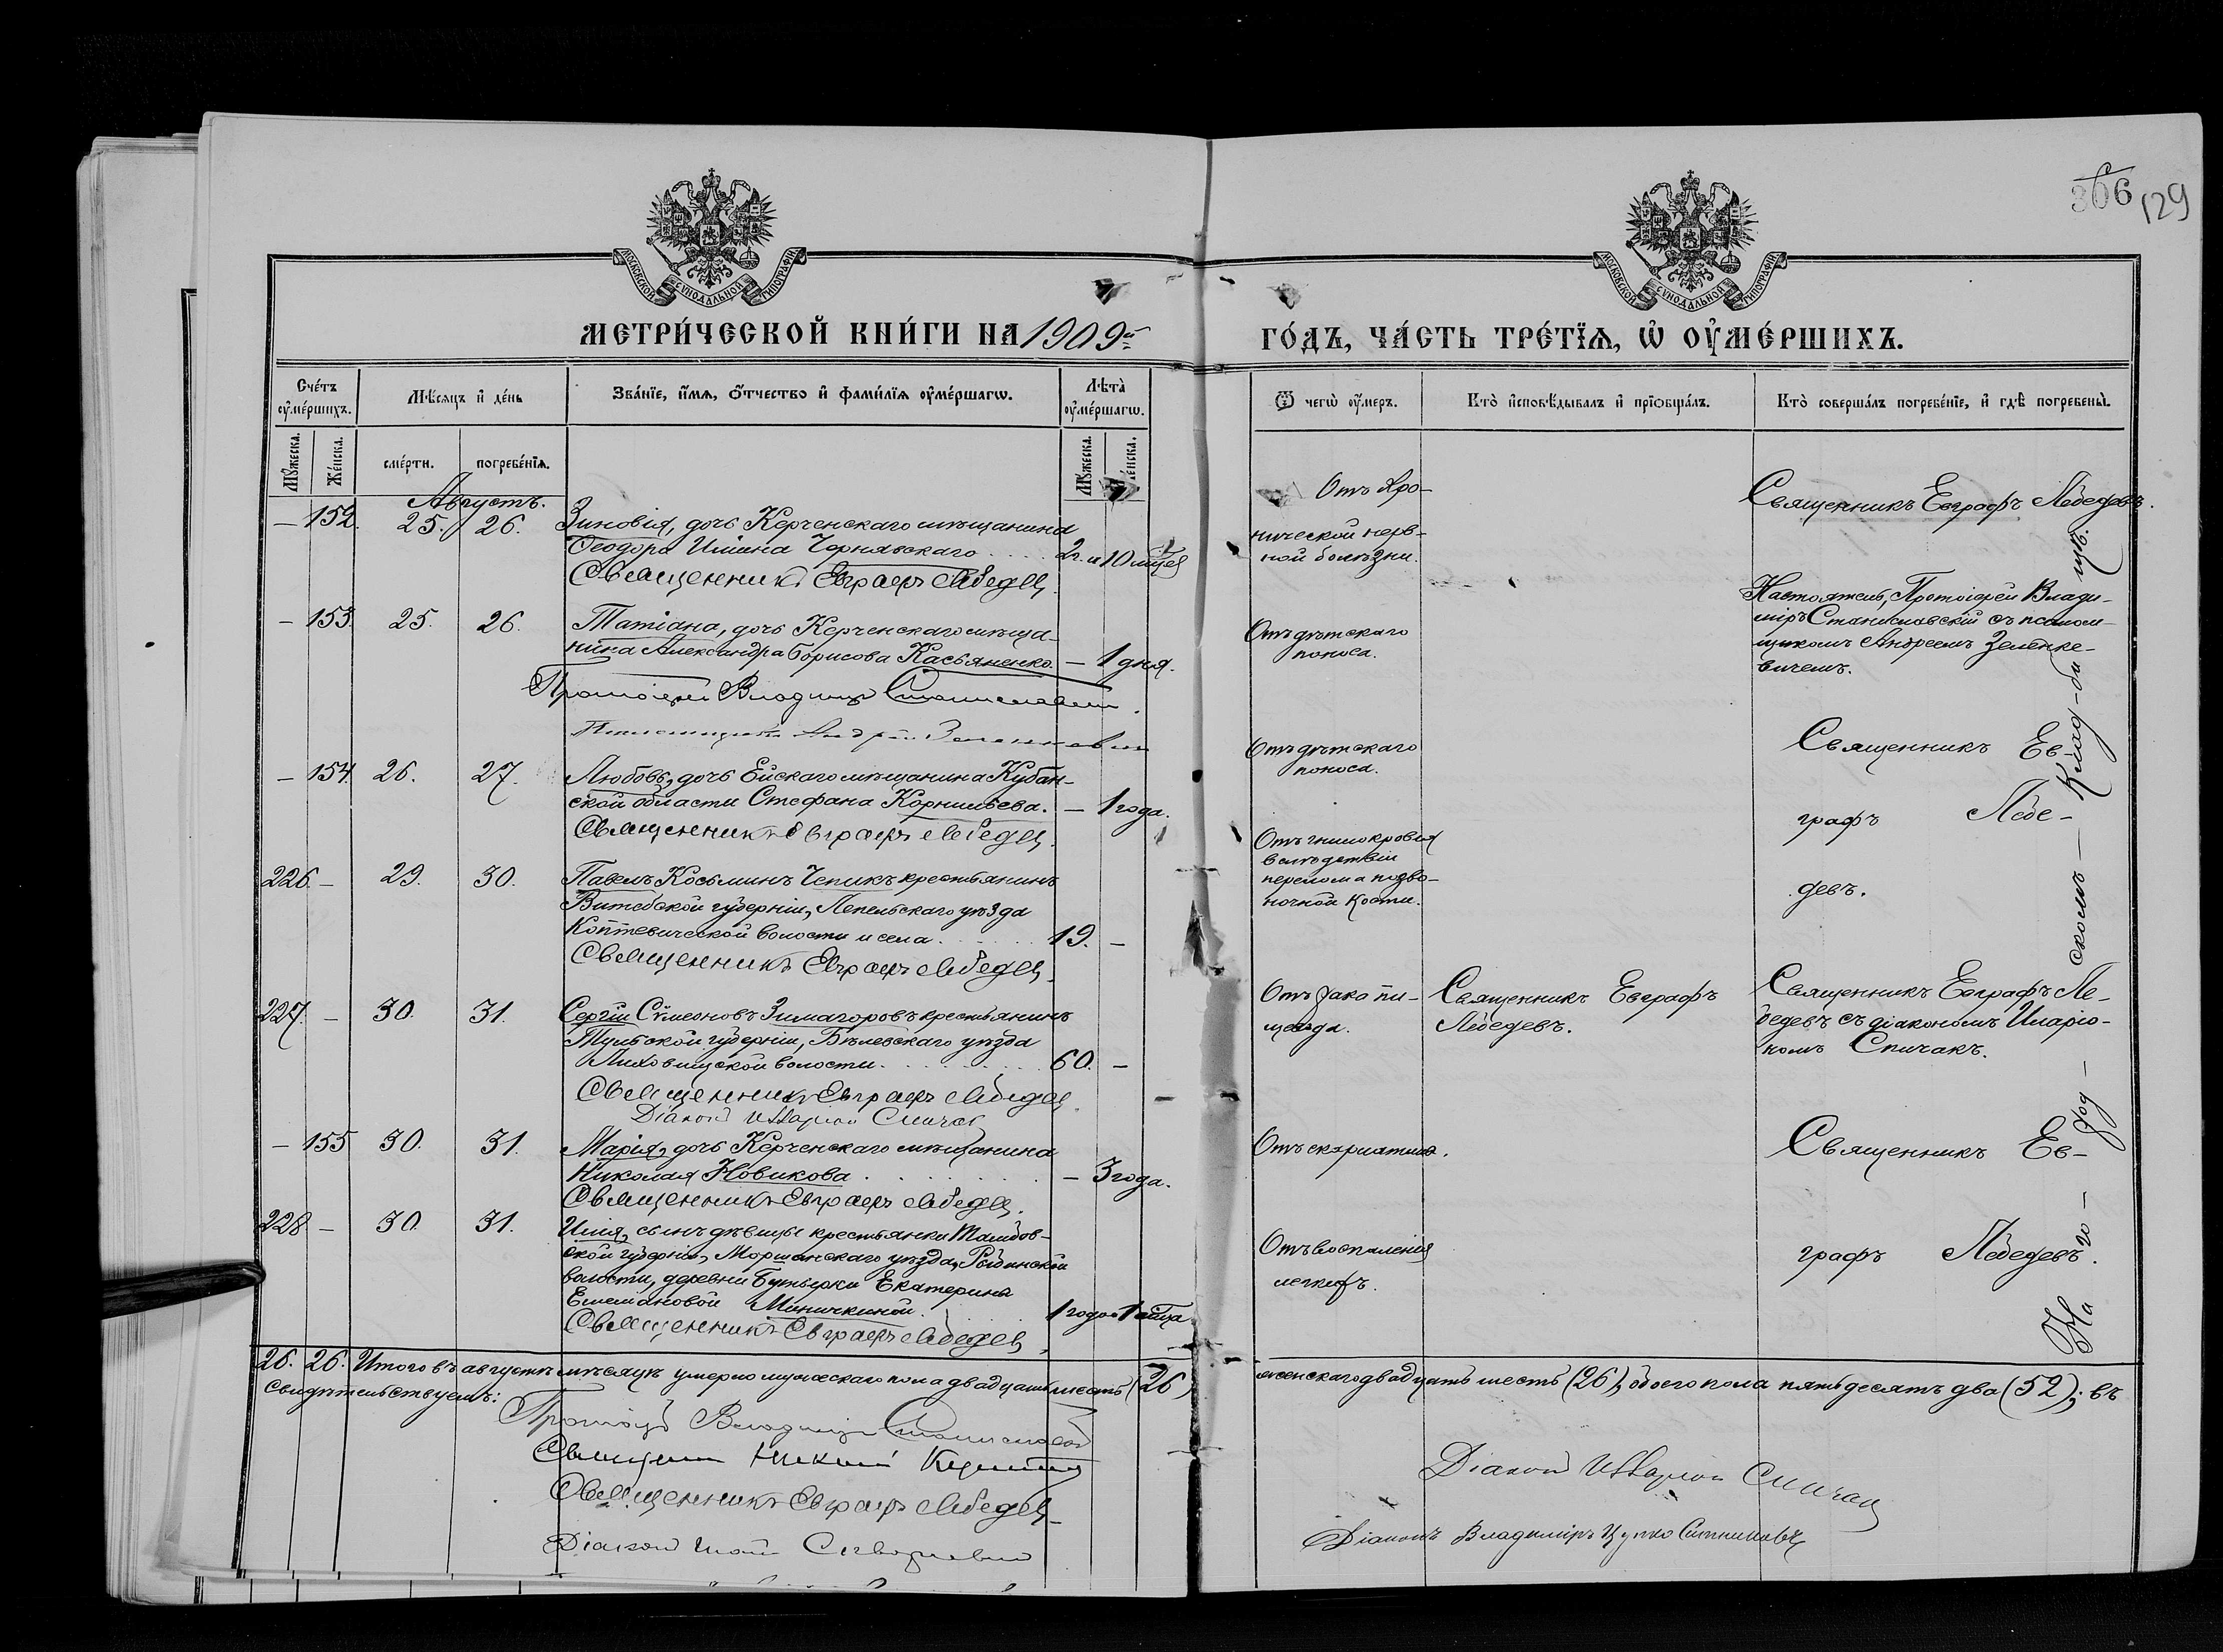 366 129
МОСКОВСКОЙ СУНОДАЛЬНОЙ ТИПОГРАФІИ
МОСКОВСКОЙ СУНОДАЛЬНОЙ ТИПОГРАФІИ
МЕТРИ́ЧЕСКОЙ КНИ́ГИ НА 1909 й
ГО́ДЪ, ЧА́СТЬ ТРЕ́ТЇѦ, Ѡ҆ ОУ҆МЕ́РШИХЪ.
Сче́тъ оу҆ме́ршихъ.
Мѣ́сѧцъ и҆ де́нь
Зва́нїе, и҆́мѧ, ѻ҆́тчество и҆ фами́лїѧ оу҆ме́ршагѡ.
Лѣта̀ оу҆ме́ршагѡ.
Ѿ чегѡ̀ оу҆́меръ.
Кто̀ и҆сповѣ́дывалъ и҆ прїѡбща́лъ.
Кто̀ соверша́лъ погребе́нїе, и҆ гдѣ̀ погребены̀.
Мꙋ́жеска.
Же́нска.
сме́рти.
погребе́нїѧ.
Мꙋ́жеска.
Же́нска.
Августъ.
— 152. 25. 26. Зиновія, дочь Керченскаго мѣщанина
Ѳеодора Иліина Чернявскаго . . . . 2 г. и 10 мцев
Священникъ Евграфъ Лебедев.
Отъ хро-
нической нерв-
ной болѣзни.
Священникъ Евграфъ Лебедевъ.
— 153. 25. 26. Татіана, дочь Керченскаго мѣща-
нина Александра Борисова Касьяненко. — 1 дня.
Протоіерей Владимір Станиславскій.
Псаломщикъ Андрей Зеленкевич
Отъ дѣтскаго
поноса.
Настоятель, Протоіерей Влади-
міръ Станиславскій съ псалом-
щикомъ Андреемъ Зеленке-
вичемъ.
— 154. 26. 27. Любовь, дочь Ейскаго мѣщанина Кубан-
ской области Стефана Корнильева. — 1 года.
Священникъ Евграфъ Лебедев.
Отъ дѣтскаго
поноса.
Священникъ Ев-
графъ Лебе-
девъ.
226. — 29. 30. Павелъ Косьминъ Чепикъ крестьянинъ
Витебской губерніи, Лепельскаго уѣзда
Коптевической волости и села . . . . . . 19. —
Священникъ Евграфъ Лебедев.
Отъ гнилокровія
вслѣдствіи
перелома позво-
ночной кости.
227. — 30. 31. Сергій Сѵмеоновъ Зимагоровъ крестьянинъ
Тульской губерніи, Бѣлевскаго уѣзда
волости . . . . . . . . . 60. —
Священникъ Евграфъ Лебедев.
Діакон Иларіон Спичак
Отъ рака пи-
щевода.
Священникъ Евграфъ
Лебедевъ.
Священникъ Евграфъ Ле-
бедевъ съ діакономъ Иларіо-
номъ Спичакъ.
— 155 30. 31. Марія, дочь Керченскаго мѣщанина
Николая Новикова . . . . . . . . — 3 года.
Священникъ Евграфъ Лебедев.
Отъ скарлатины.
Священникъ Ев-
графъ Лебедевъ.
228 — 30. 31. Илія, сынъ дѣвицы крестьянки Тамбов-
ской губерніи, Моршанскаго уѣзда,
волости, деревни Бутырки Екатерины
Емельановой Миничкиной. 1 годъ 1 мѣсца
Священникъ Евграфъ Лебедев,
Отъ воспаленія
легкихъ.
На го — род — скомъ — клад-би — щѣ.
26. 26. Итого въ августѣ мѣсяцѣ умерло мужескаго пола двадцать шесть (26)
женскаго двадцать шесть (26), обоего пола пятьдесятъ два (52); въ
свидѣтельствуемъ:
Протоіер Владимір Станиславскій
Священник
Священникъ Евграфъ Лебедев
Діакон
Діакон Иларіон Спичак
Діаконъ Владиміръ Цупко Ситниковъ